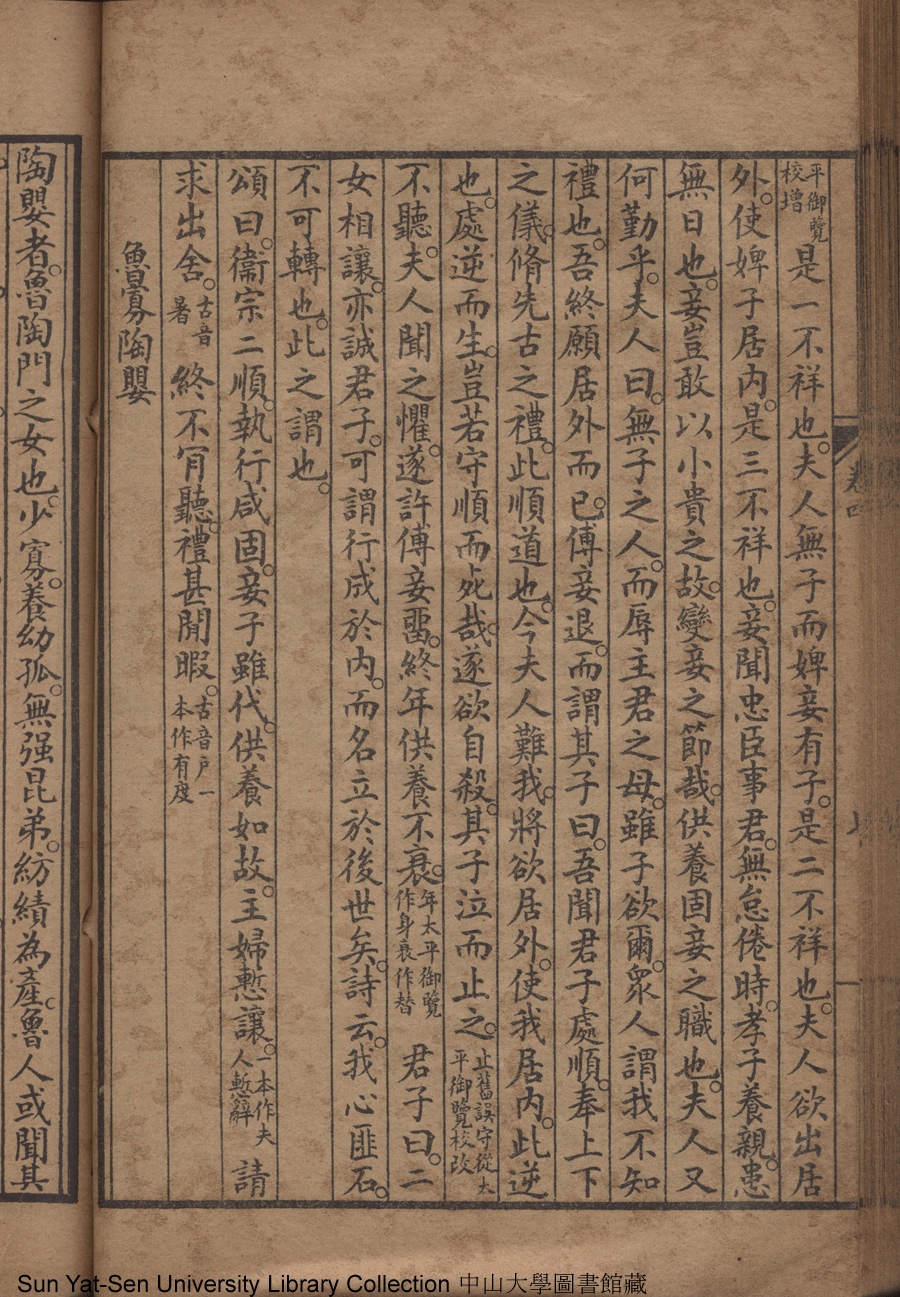 平御覽校增是一不祥也。夫人無子而婢妾有子。是二不祥也。夫人欲出居
外。使婢子居內。是三不祥也。妾聞忠臣事君。無怠倦時。孝子養親。患
無日也。妾豈敢以小貴之故。變妾之節哉。供養固妾之職也。夫人又
何勤乎。夫人曰。無子之人。而辱主君之母。雖子欲爾。眾人謂我不知
禮也。吾終願居外而已。傅妾退。而謂其子曰。吾聞君子處順。奉上下
之儀。脩先古之禮。此順道也。今夫人難我。將欲居外。使我居內。此逆
也。處逆而生。豈若守順而死哉。遂欲自殺。其子泣而止之。止舊誤守從太平御覽校改
不聽。夫人聞之懼。遂許傅妾留。終年供養不衰。年太平御覽作身衰作替 君子曰。二
女相讓。亦誠君子。可謂行成於內。而名立於後世矣。詩云。我心匪石。
不可轉也。此之謂也。
頌曰。衞宗二順。執行咸固。妾子雖代。供養如故。主婦慙讓。一本作夫人慙辭 請
求出舍。古音暑 終不肎聽。禮甚閒暇。古音戶一本作有度
魯寡陶嬰
陶嬰者。魯陶門之女也。少寡。養幼孤。無强昆弟。紡績為產。魯人或聞其
卷四